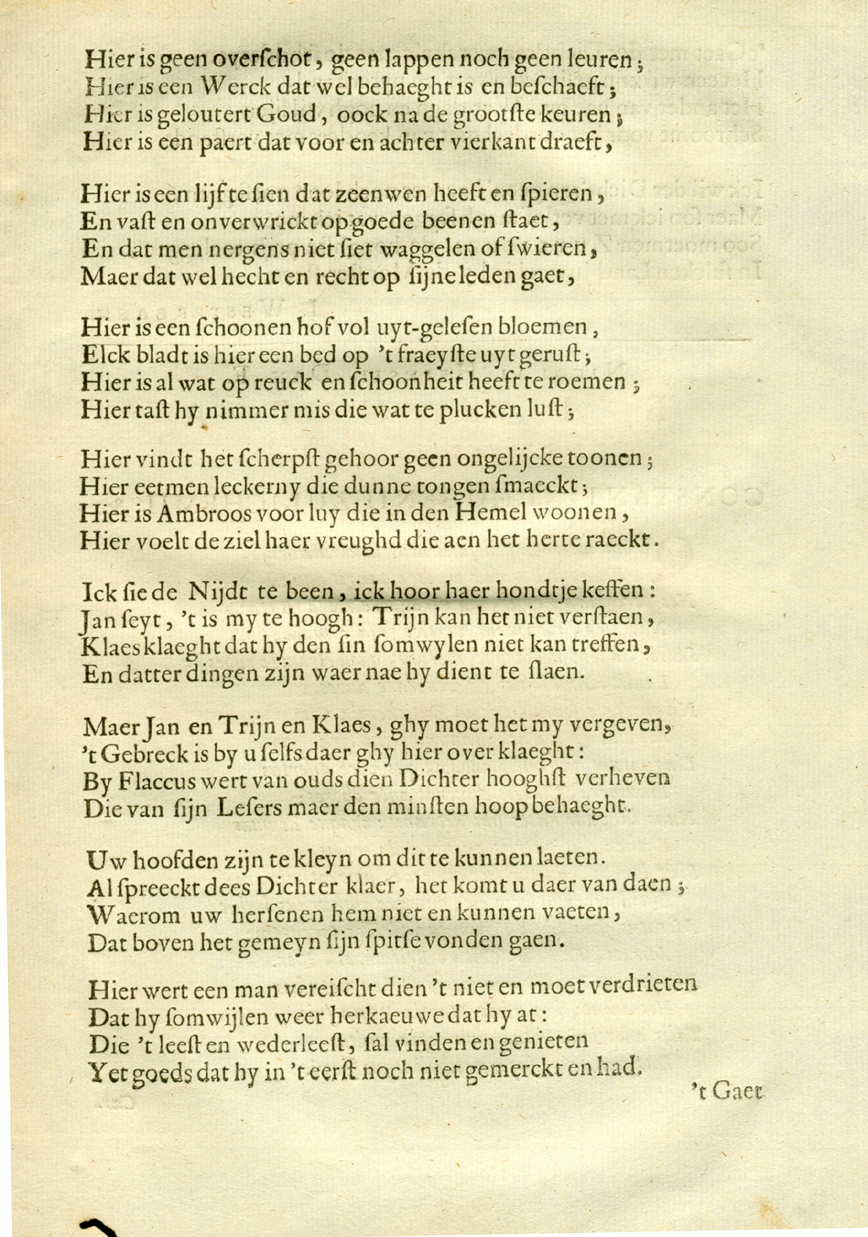 Hier is geen overſchot, geen lappen noch geen leuren;
Hier is een Werck dat wel behaeght is en beſchaeft;
Hier is geloutert Goud, oock na de grootſte keuren;
Hier is een paert dat voor en achter vierkant draeft,
Hier is een lijf te ſien dat zeenwen heeft en ſpieren,
En vaſt en onverwrickt op goede beenen ſtaet,
En dat men nergens niet ſiet waggelen of ſwieren,
Maer dat wel hecht en recht op ſijne leden gaet,
Hier is een ſchoonen hof vol uyt-geleſen bloemen,
Elck bladt is hier een bed op 't fraeyſte uyt geruſt;
Hier is al wat op reuck en ſchoonheit heeft te roemen;
Hier taſt hy nimmer mis die wat te plucken luſt;
Hier vindt het ſcherpſt gehoor geen ongelijcke toonen;
Hier eetmen leckerny die dunne tongen ſmaeckt;
Hier is Ambroos voor luy die in den Hemel woonen,
Hier voelt de ziel haer vreughd die aen het herte raeckt.
Ick ſie de Nijdt te been, ick hoor haer hondtje keffen:
Jan ſeyt, 't is my te hoogh: Trijn kan het niet verſtaen,
Klaes klaeght dat hy den ſin ſomwylen niet kan treffen,
En datter dingen zijn waer nae hy dient te ſlaen.
Maer Jan en Trijn en Klaes, ghy moet het my vergeven,
't Gebreck is by u ſelfs daer ghy hier over klaeght:
By Flaccus wert van ouds dien Dichter hooghſt verheven
Die van ſijn Leſers maer den minſten hoop behaeght.
Uw hoofden zijn te kleyn om dit te kunnen laeten.
Al ſpreeckt dees Dichter klaer, het komt u daer van daen;
Waerom uw herſenen hem niet en kunnen vaeten,
Dat boven het gemeyn ſijn ſpitſe vonden gaen.
Hier wert een man vereiſcht dien 't niet en moet verdrieten
Dat hy ſomwijlen weer herkaeuwe dat hy at:
Die 't leeſt en wederleeſt, ſal vinden en genieten
Yet goeds dat hy in 't eerſt noch niet gemerckt en had.
't Gaet